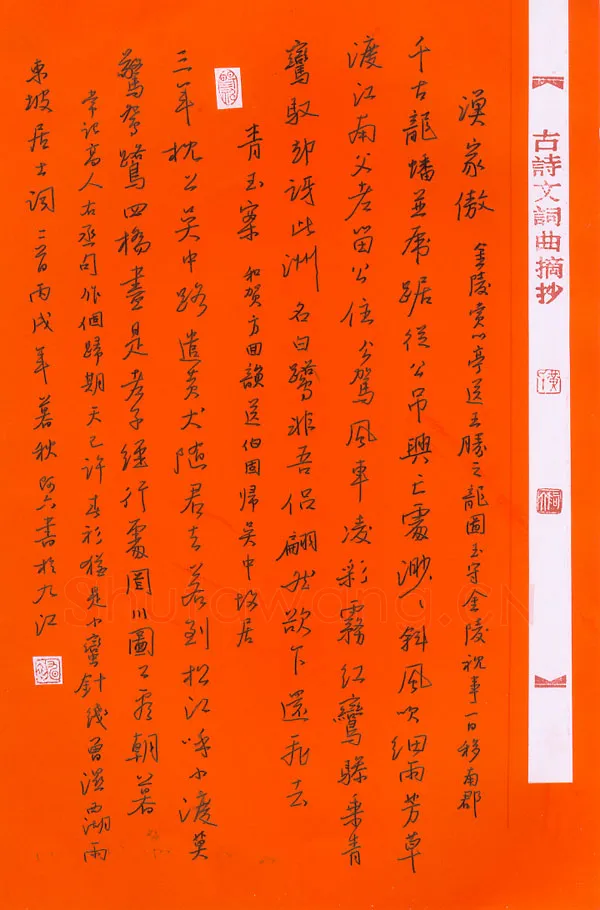 古詩文詞曲摘抄
漁家傲 金陵賞心亭送王勝之龍圖王守金陵視事一日移南郡
千古龍蟠並虎踞從公吊興亡處渺、斜風吹細雨芳草
渡江南父老留公住公駕風車凌彩霧紅鸞驂乘青
鸞馭却訝此洲名白鷺非吾侶翩然欲下還飛去
青玉案 和賀方回韻送伯固歸吳中故居
三年枕上吳中路遣黃犬隨君去若到松江呼小渡莫
驚鴛鷺四橋盡是老子經行處輞川圖上看朝暮
常記高人右丞句作個歸期天已許春衫猶是小蠻針綫曾濕西湖雨
東坡居士詞二首丙戌年暮秋阿六書於九江
Shufawang.CN